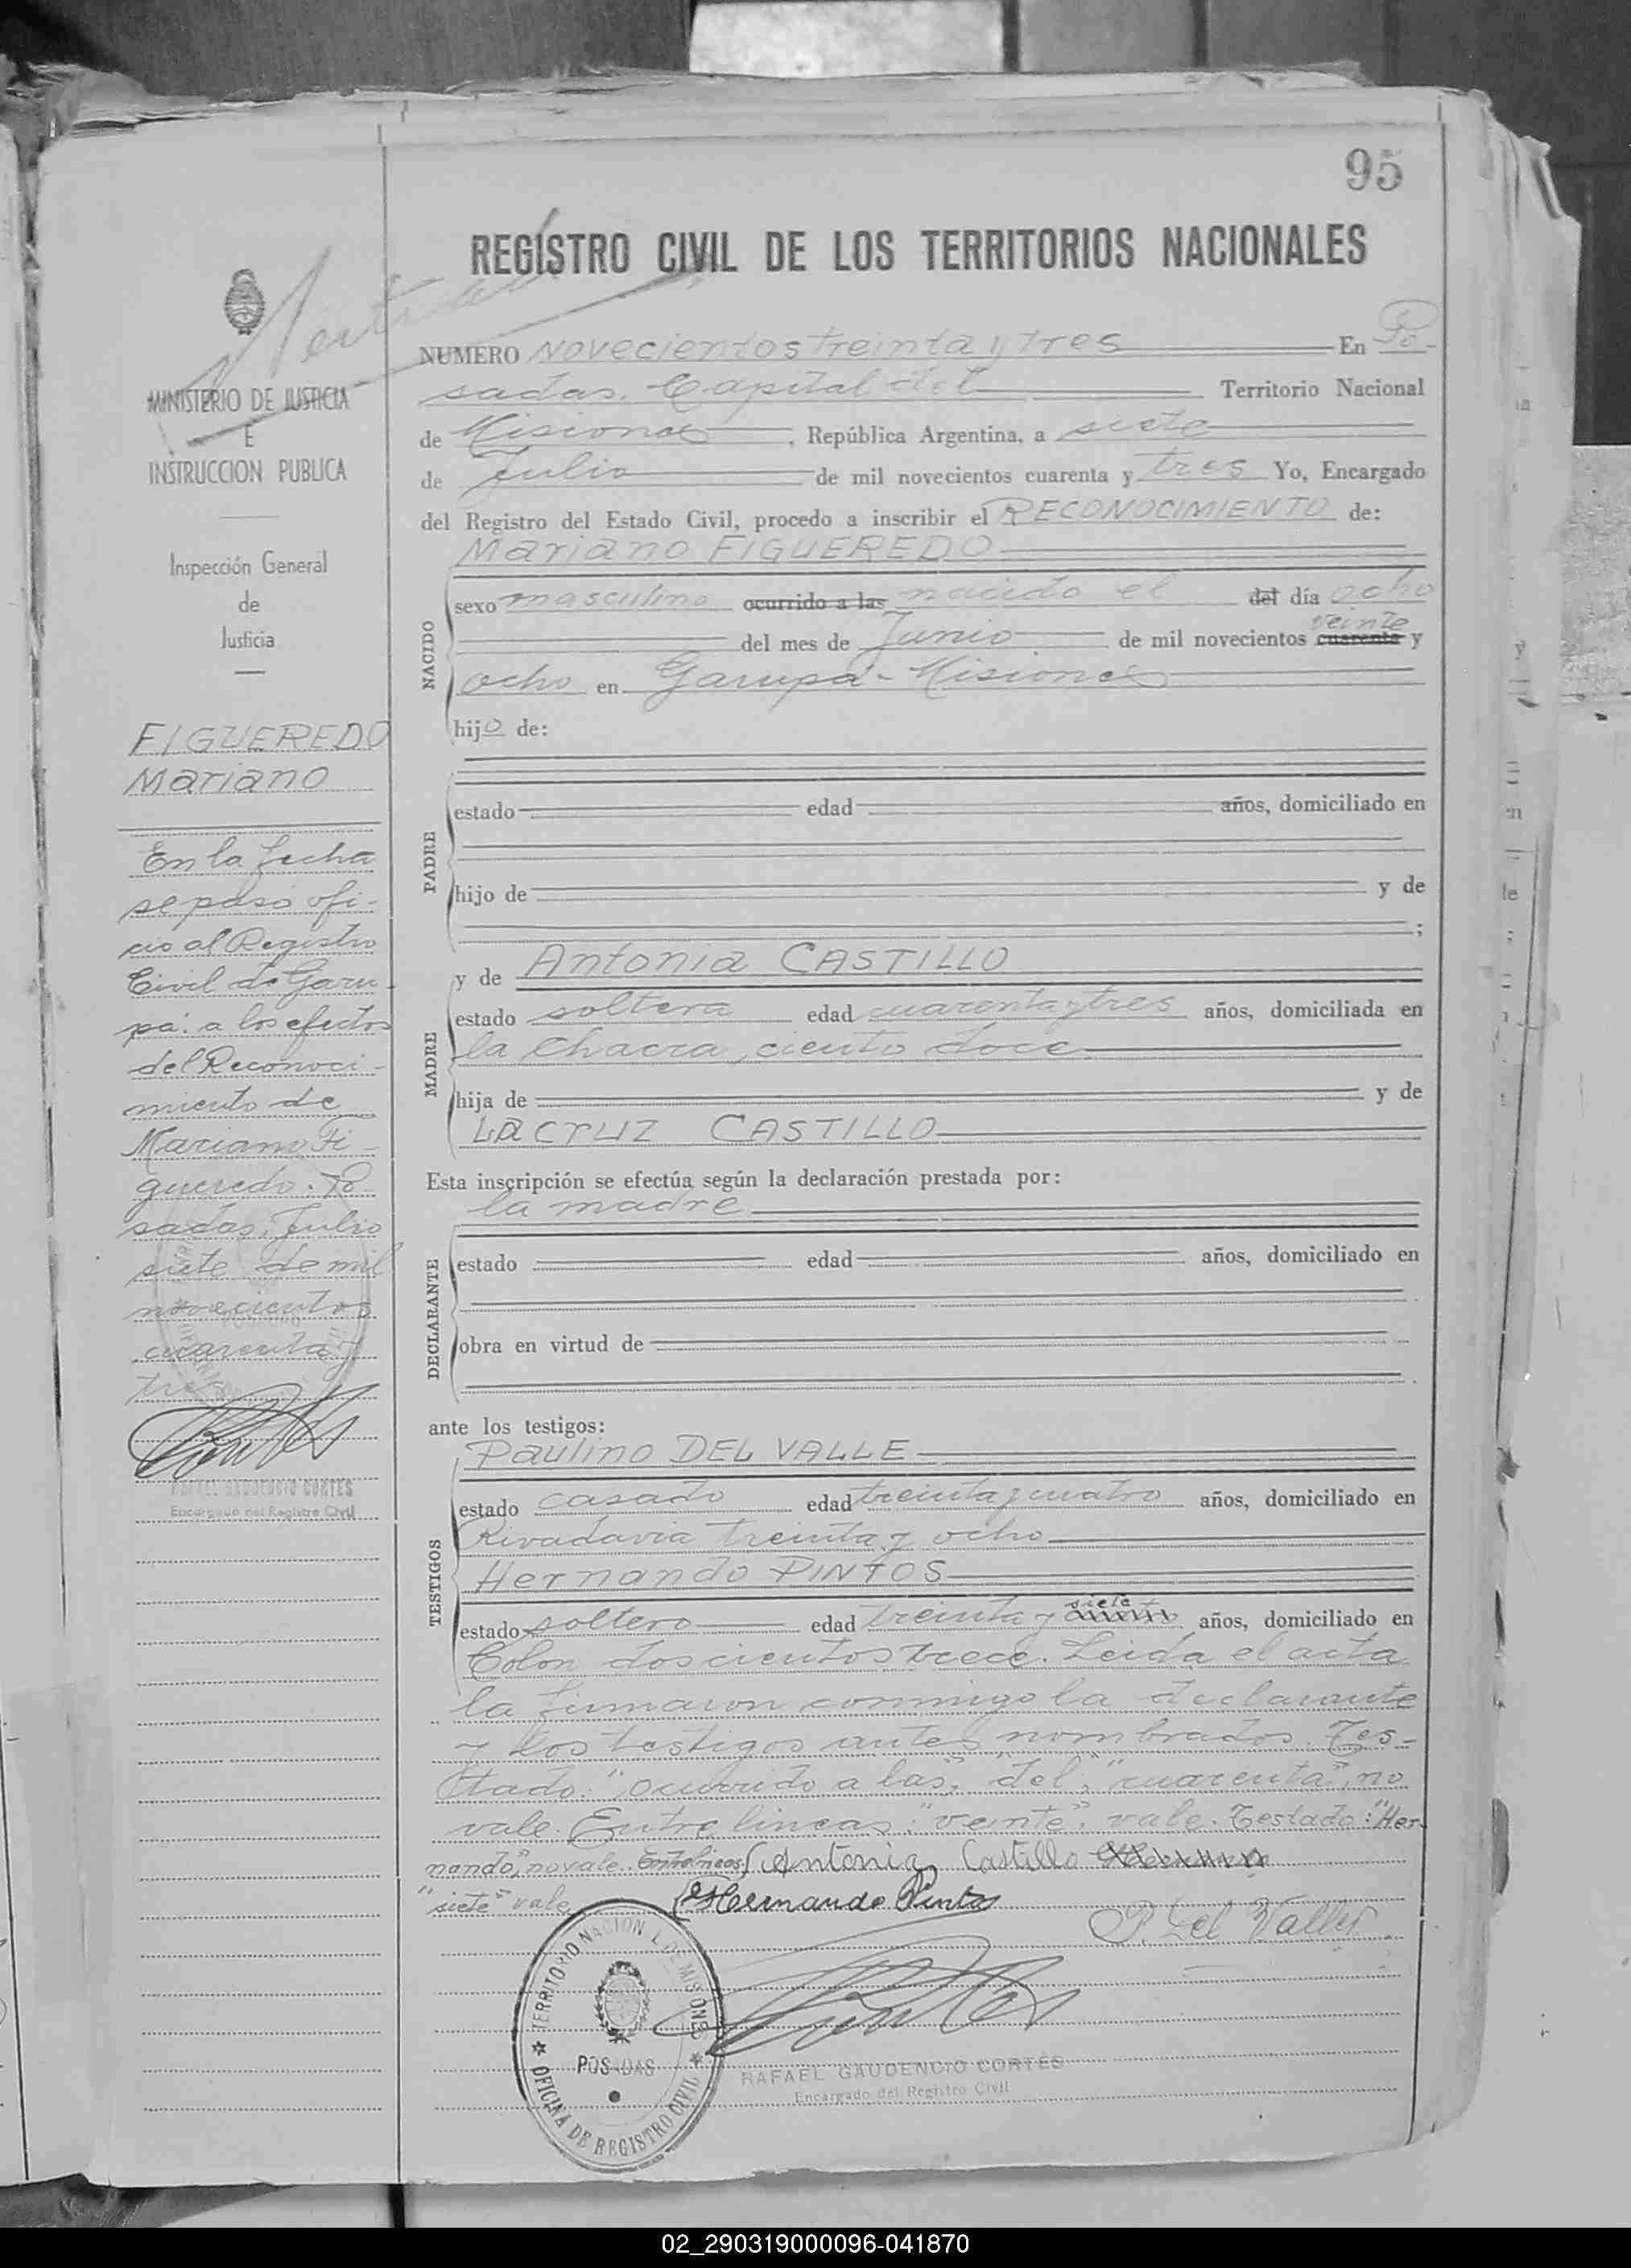 95
REGISTRO CIVIL DE LOS TERRITORIOS NACIONALES
MINISTERIO DE JUSTICIA
E
INSTRUCCION PUBLICA
Inspección General
de
Justicia
FIGUEREDO
Mariano
En la fecha
se pasó ofi-
cio al Registro
Civil de Garu-
pá: a los efectos
del Reconoci-
miento de
Mariano Fi-
gueredo. Po
sadas, Julio
siete de mil
novecientos
cuarenta y
tres
RAFAEL GAUDENCIO CORTES
Encargado del Registro Civil
NUMERO novecientos treinta y tres En Po-
sadas, Capital del Territorio Nacional
de Misiones, República Argentina, a siete
de Julio de mil novecientos cuarenta y tres Yo, Encargado
del Registro del Estado Civil, procedo a inscribir el RECONOCIMIENTO de:
Mariano FIGUEREDO
NACIDO
sexo masculino ocurrido a las nacido el del día ocho
veinte
del mes de Junio de mil novecientos cuarenta y
ocho en Garupá-Misiones
hijo de:
PADRE
estado edad años, domiciliado en
hijo de y de
;
MADRE
y de Antonia CASTILLO
estado soltera edad cuarenta y tres años, domiciliada en
la chacra, ciento doce
hija de y de
La cruz CASTILLO
Esta inscripción se efectúa según la declaración prestada por:
la madre
DECLARANTE
estado edad años, domiciliado en
obra en virtud de
ante los testigos:
TESTIGOS
Paulino DEL VALLE
estado casado edad treinta y cuatro años, domiciliado en
Rivadavia treinta y ocho
Hernando PINTOS
siete
estado soltero edad treinta y años, domiciliado en
Colon doscientos trece. Leida el acta
la firmaron conmigo la declarante
y los testigos antes nombrados. Tes-
tado: "ocurrido a las", "del", "cuarenta", no
vale. Entre lineas: "veinte", vale. Testado: "Her-
nando," no vale. Entrelineas: Antonia Castillo
"siete" vale Hernando Pintos
P. Del Valle
TERRITORIO NACIONAL DE MISIONES
POSADAS
OFICINA DE REGISTRO CIVIL
RAFAEL GAUDENCIO CORTES
Encargado del Registro Civil
02_290319000096-041870